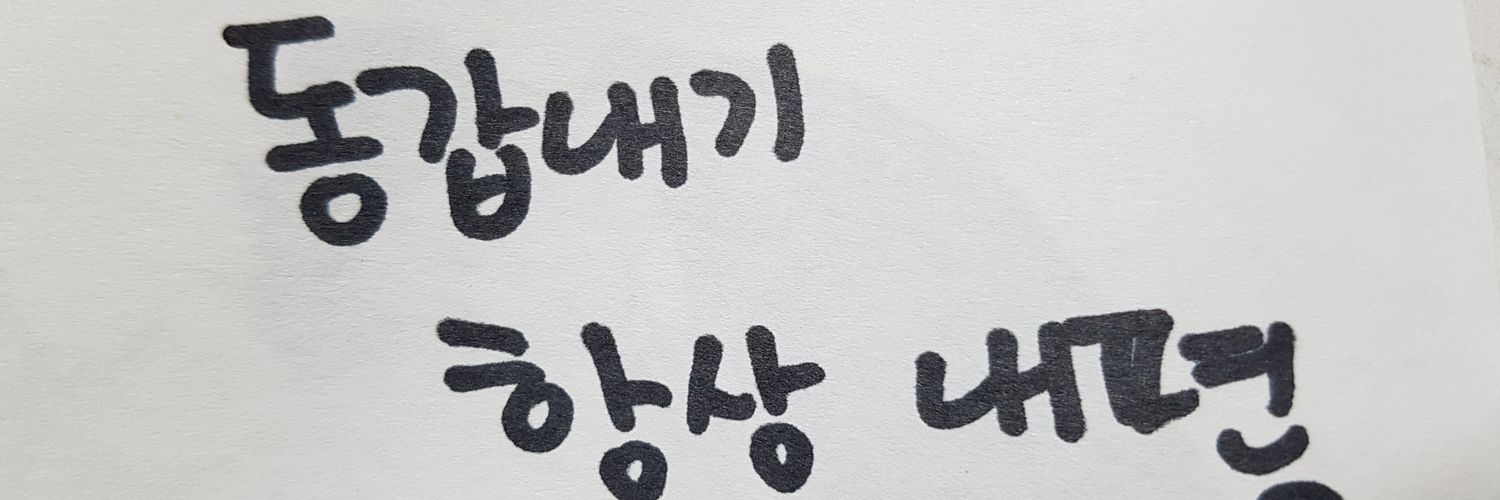 동갑내기
항상 내편